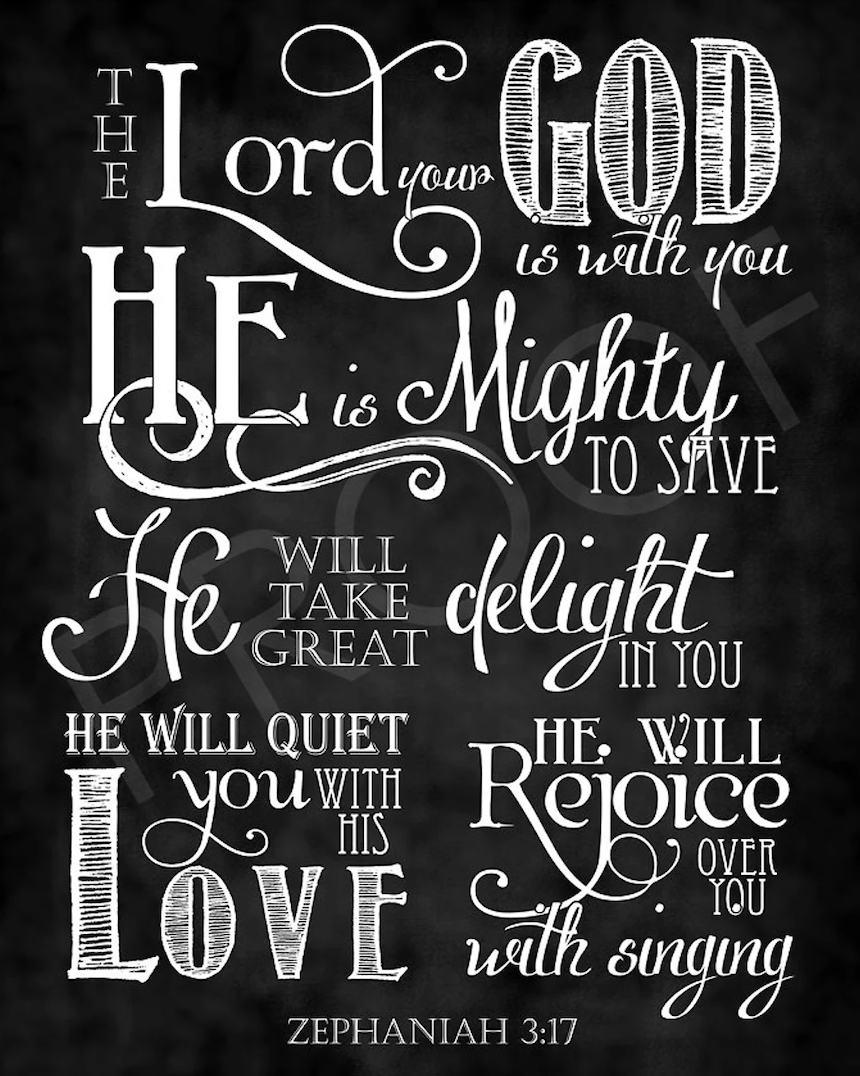 THE Lord your GOD
is with you
HE is Mighty
TO SAVE
He WILL TAKE GREAT delight
IN YOU
HE WILL QUIET
you WITH
HIS
LOVE
HE WILL
Rejoice
OVER
YOU
with singing
ZEPHANIAH 3:17
PROOF